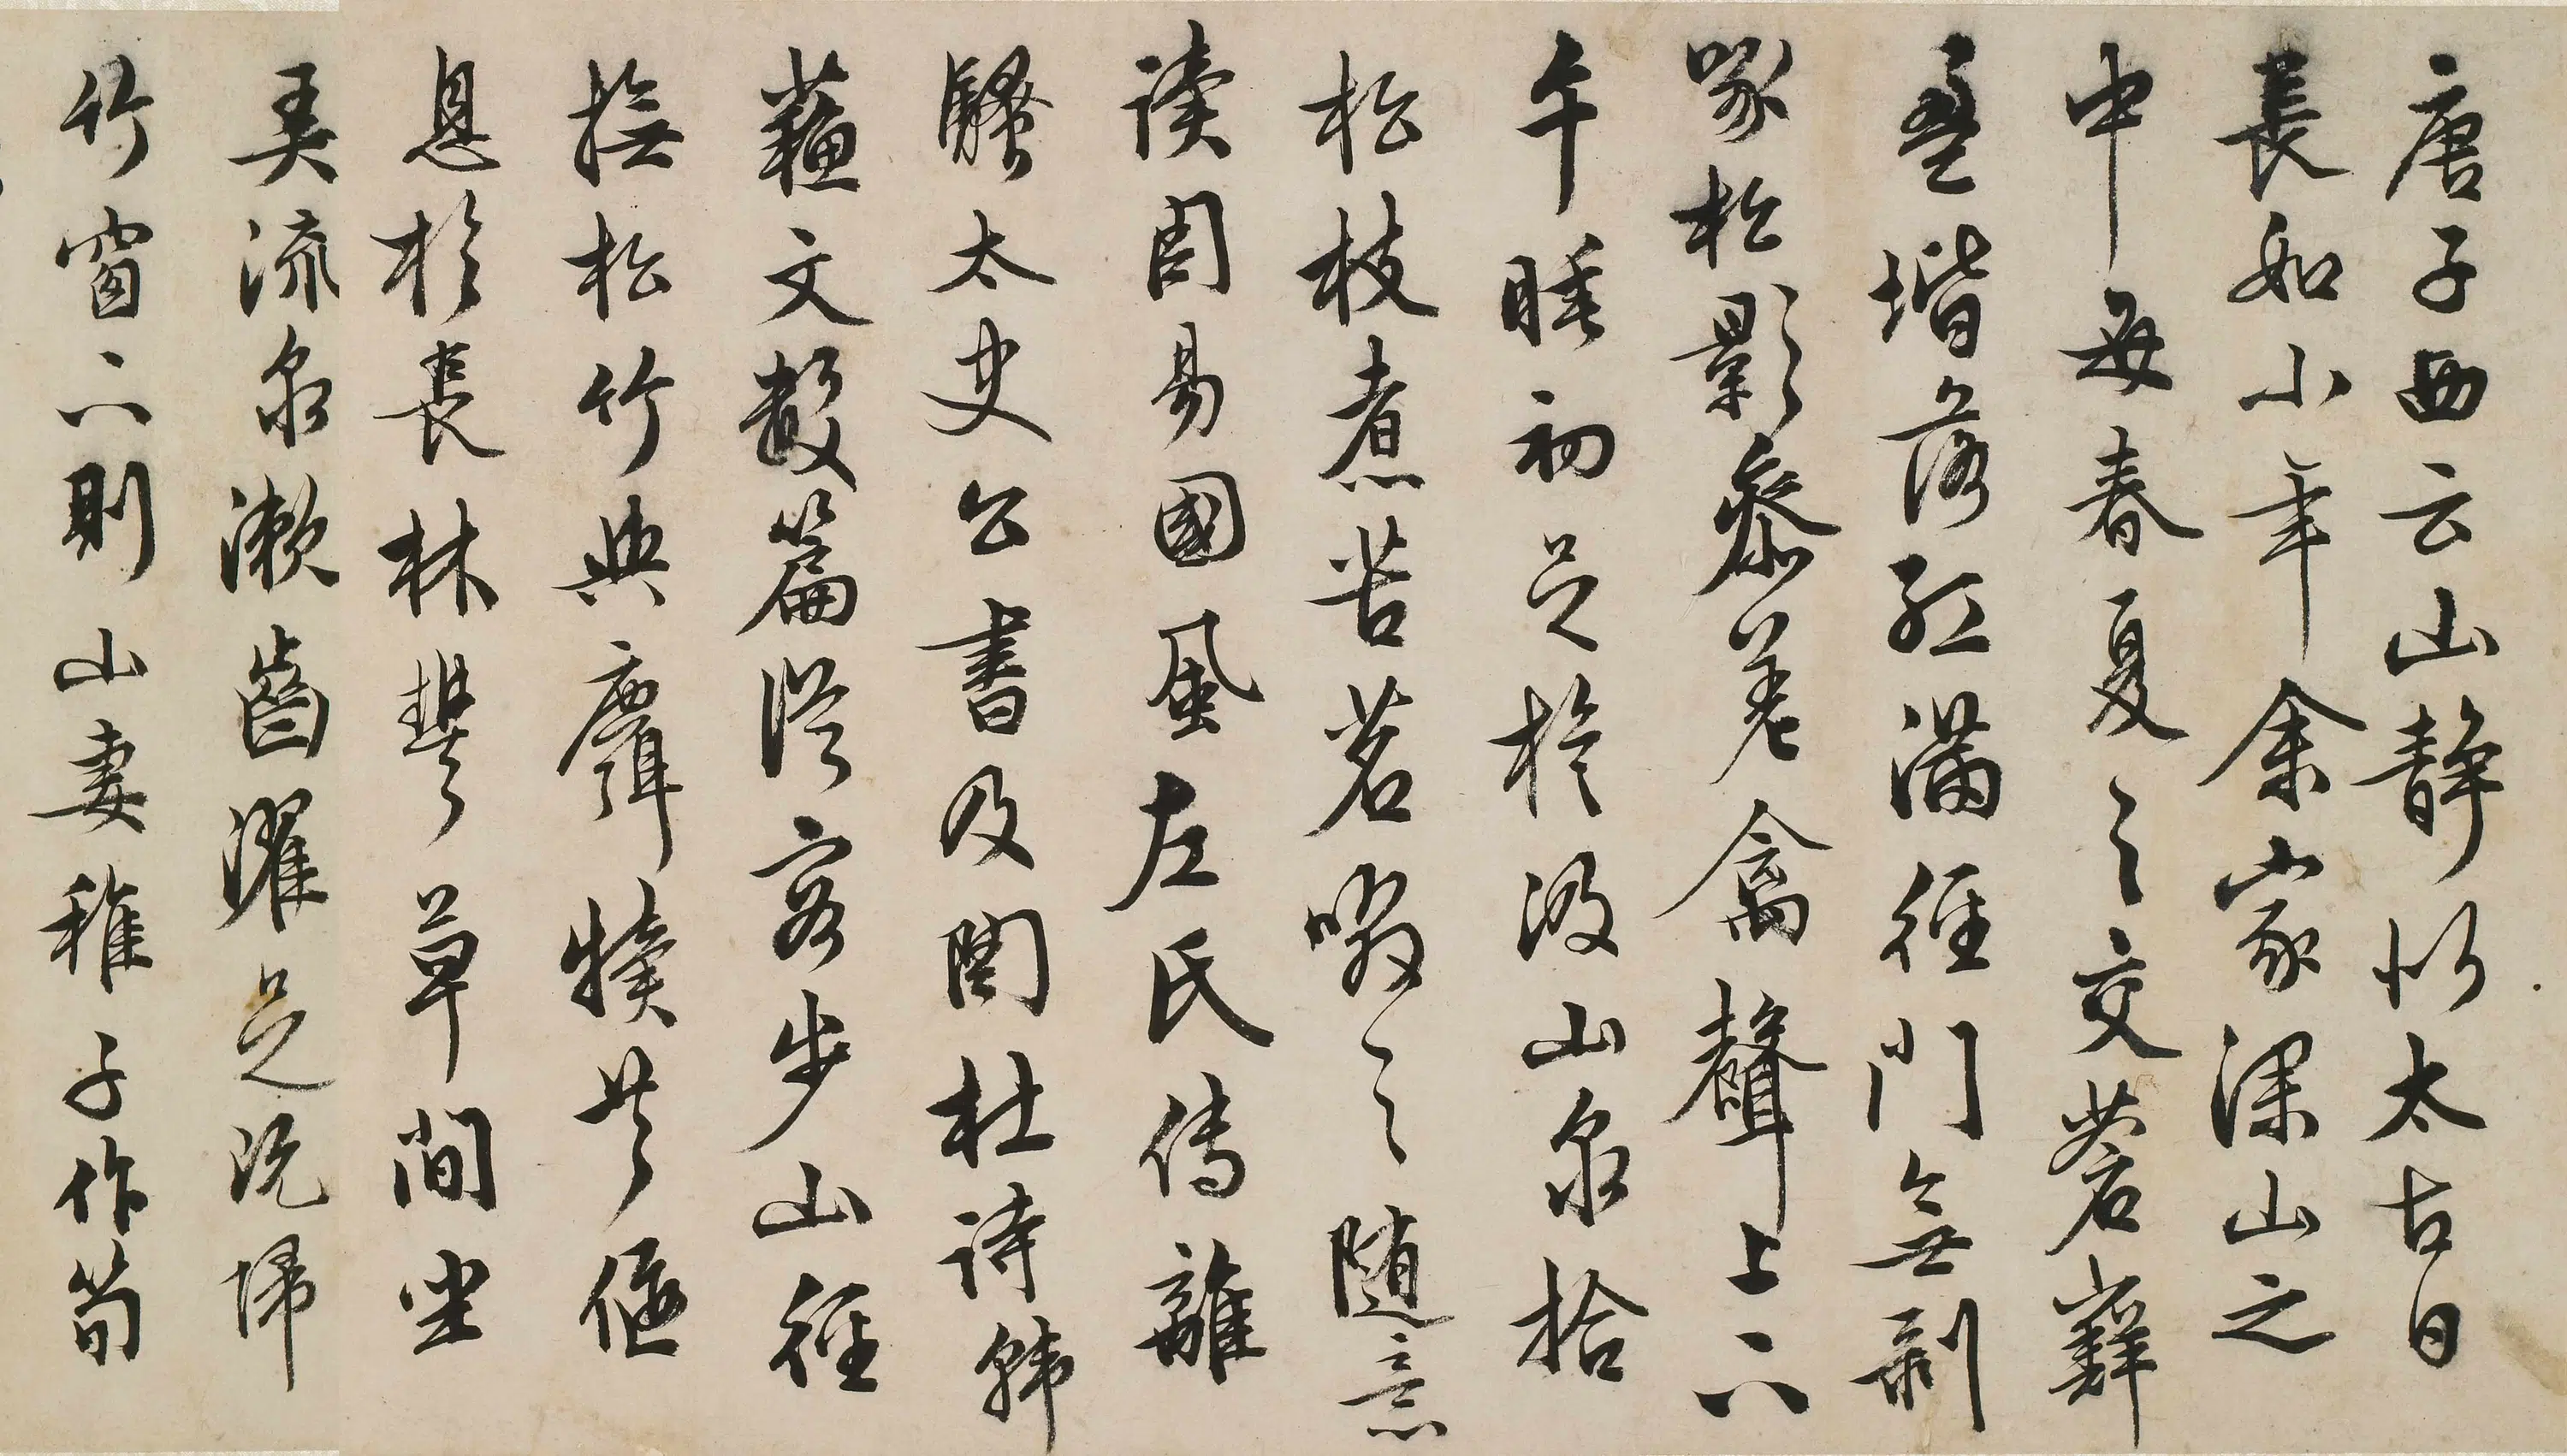 唐子西云山靜似太古日
長如小年余家深山之
中每春夏之交蒼蘚
盈堦落紅滿徑門無剥
啄松影參差禽聲上下
午睡初足旋汲山泉拾
松枝煮苦茗啜之隨意
讀周易國風左氏傳離
騷太史公書及閱杜詩韓
蘇文數篇從容步山徑
撫松竹與麛犢共偃
息於長林豐草間坐
弄流泉漱齒濯足既歸
竹窗下則山妻稚子作筍